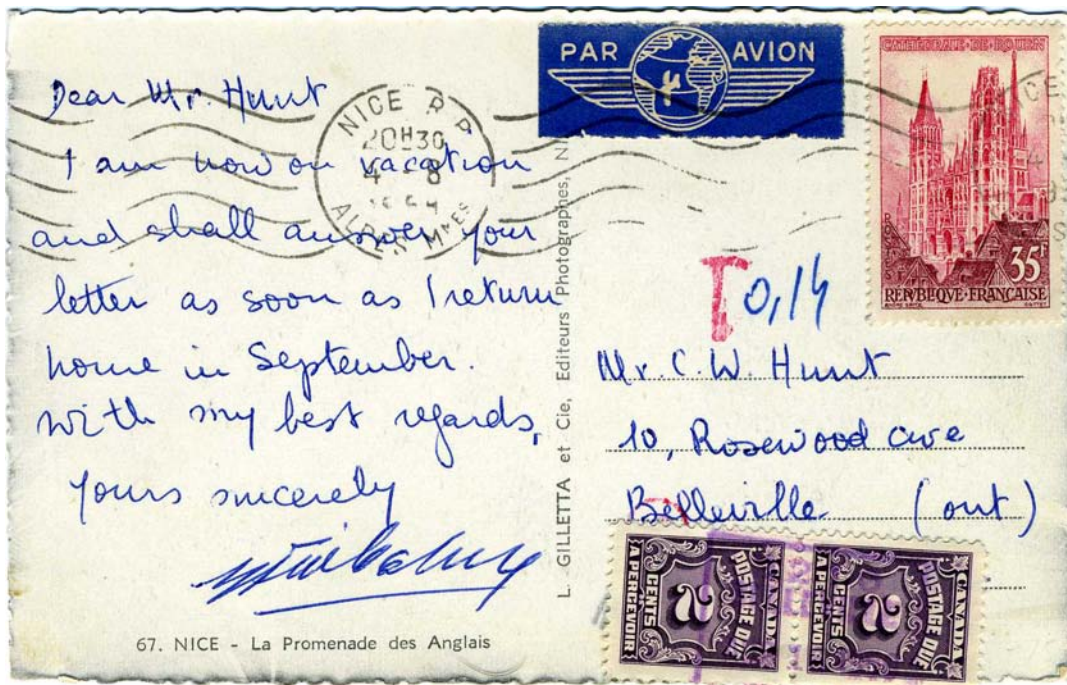 Dear Mr. Hunt
I am now on vacation
and shall answer your
letter as soon as I return
home in September.
With my best regards,
yours sincerely
67. NICE - La Promenade des Anglais
L. GILLETTA et Cie, Editeurs Photographes,
PAR AVION
NICE R.P
20H30
4 - 8
CATHÉDRALE·DE·ROUEN
35F
REPUBLIQUE·FRANÇAISE
T 0,14
Mr. C. W. Hunt
10, Rosewood ave
Belleville (ont)
CANADA
POSTAGE DUE
2
CENTS
A PERCEVOIR
CANADA
POSTAGE DUE
2
CENTS
A PERCEVOIR